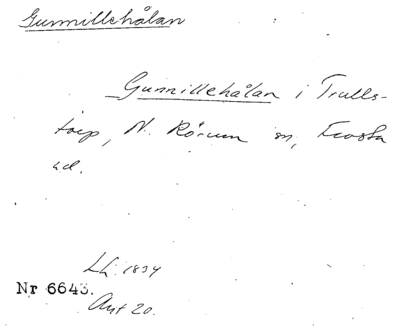 Gunnillehålan
Gunnillehålan i Trulls-
torp, N. Rörum sn, Frosta
hd.
Lh. 1834
Nr 6643.
Avt 20.